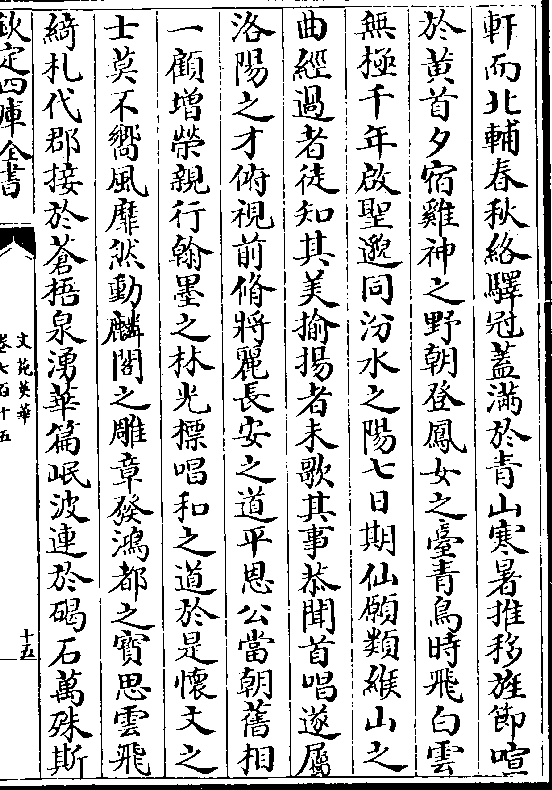 軒而北輔春秋絡驛冠蓋滿於青山寒暑推移旌節喧
於黄首夕宿雞神之野朝登鳳女之臺青鳥時飛白雲
無極千年啟聖邈同汾水之陽七日期仙願類緱山之
曲經過者徒知其美揄揚者未歌其事恭聞首唱遂屬
洛陽之才俯視前脩將麗長安之道平恩公當朝舊相
一顧增榮親行翰墨之林光摽唱和之道於是懷文之
士莫不嚮風靡然動麟閣之雕章發鴻都之寳思雲飛
綺札代郡接於蒼梧泉湧華篇岷波連於碣石萬殊斯
欽定四庫全書
文苑英華
卷七百十五
十五